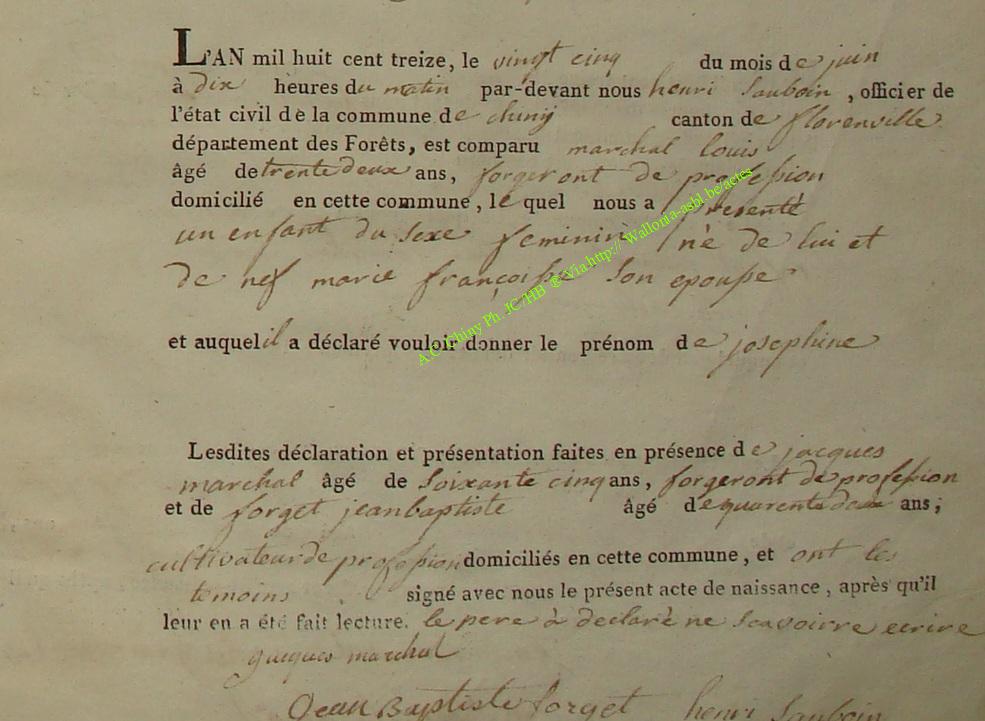 L'AN mil huit cent treize, le vingt cinq du mois de juin
à dix heures du matin par-devant nous henri Sauboin, officier de
l'état civil de la commune de chiny canton de florenville
département des Forêts, est comparu marchal louis
âgé de trente deux ans, forgeront de profession
domicilié en cette commune, le quel nous a presenté
un enfant du sexe feminin né de lui et
de nef marie françoisse son epousse
et auquel il a déclaré vouloir donner le prénom de josephine
Lesdites déclaration et présentation faites en présence de jacques
marchal âgé de soixante cinq ans, forgeront de profession
et de forget jeanbaptiste âgé de quarente deux ans;
cultivateur de profession domiciliés en cette commune, et ont les
temoins signé avec nous le présent acte de naissance, après qu'il
leur en a été fait lecture. le pere à declaré ne scavoirre ecrire
jacques marchal
Jean Baptiste forget henri Sauboin
A.C. Chiny Ph JC/HB ® Via http:// Wallonia-asbl.be/actes